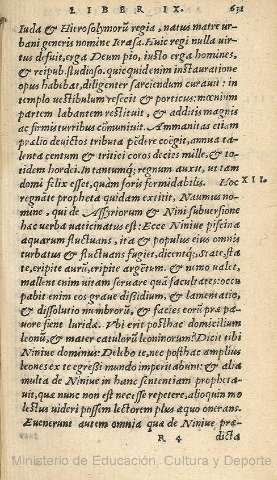 LIBER IX. 631
Iuda & Hierosolymorũ regia, natus matre vr-
bani generis nomine Ierasa. Huic regi nulla vir-
tus defuit, erga Deum pio, iusto erga homines,
& reipub. studioso. quicquid enim instauratione
opus habebat, diligenter sarciendum curauit: in
templo vestibulum refecit & porticus: mœnium
partem labantem restituit, & additis magnis
ac firmis turribus cõmuniuit. Ammanitas etiam
prælio deuictos tributa pẽdere coëgit, annua ta-
lenta centum & tritici coros decies mille, & to-
tidem hordei. In tantumq; regnum auxit, vt tam
domi felix esset, quàm foris formidabilis. Hoc XII.
regnãte propheta quidam extitit, Naumus no-
mine, qui de Assyriorum & Nini subuersione
hæc verba vaticinatus est: Ecce Niniue piscina
aquarum fluctuans, ita & populus eius omnis
turbatus & fluctuans fugiet, dicentq;, State, sta
te, eripite aurũ, eripite argẽtum. & nemo volet,
mallent enim vitam seruare quã facultates: occu
pabit enim eos graue dissidium, & lamentatio,
& dissolutio membrorũ, & facies eorũ præ pa-
uore fient luridæ. Vbi erit posthac domicilium
leonũ, & mater catulorũ leoninorum? Dicit tibi
Niniue dominus: Delebo te, nec posthac amplius
leones ex te egressi mundo imperitabunt: & alia
multa de Niniue in hanc sententiam propheta-
uit, quæ nunc non est necesse repetere, alioquin mo
lestus videri possim lectorem plus æquo onerans.
Euenerunt autem omnia quæ de Niniue præ-
R 4 dicta
Ministerio de Educación, Cultura y Deporte